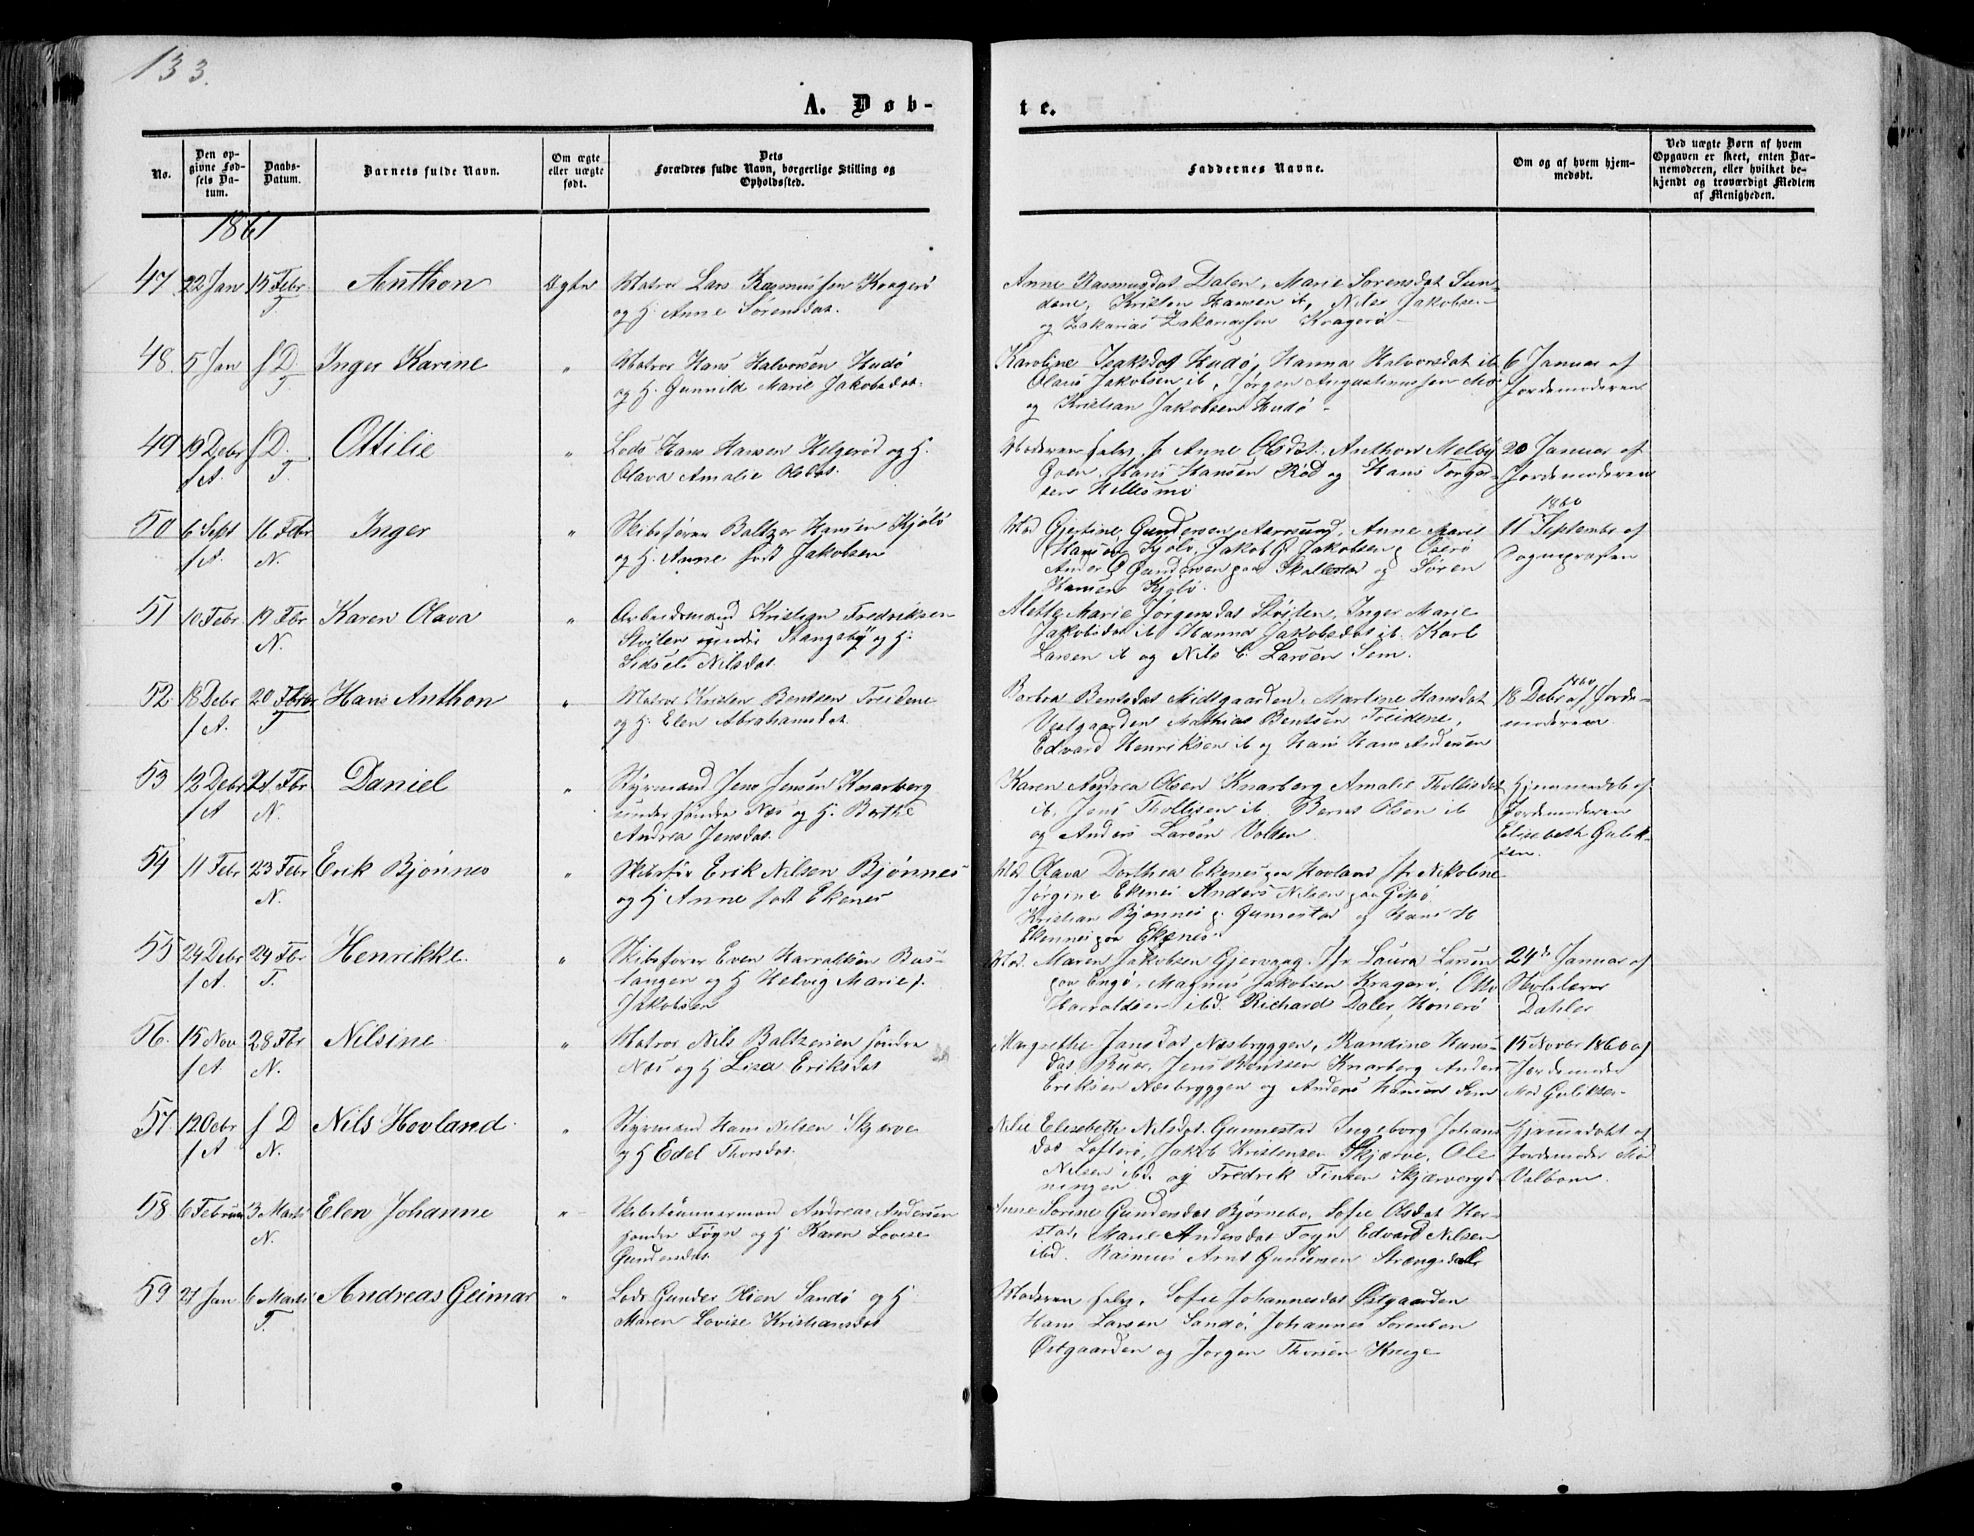 133.
A. Døb-
te.
No.
Den op-
givne Fød-
sels Da-
tum.
Daabs-
Datum.
Barnets fulde Navn.
Om ægte
eller uægte
født.
Dets
Forældres fulde Navn, borgerlige Stilling og
Opholdssted.
Faddernes Navne.
Om og af hvem hjem-
medøbt.
Ved uægte Børn af hvem
Opgaven er skeet, enten Bar-
nemoderen, eller hvilket be-
kjendt og troværdigt Medlem
af Menigheden.
1861
47 22 Jan 15 Febr T Anthon Ægte
Matros Lars Rasmussen Kragerø
og H: Anne Sørensdat.
Anne Rasmusdat Dalen, Marie Sørensdat Sun-
dene, Kristen Hansen ib, Nils Jakobsen
og Zakarias Zakariassen Kragerø
48. 5 Jan f D. T Inger Karine "
Matros Hans Halvorsen Hudø
og H. Gunnild Marie Jakobsdat.
Karoline Isaksdat Hudø, Hanna Halvorsdat ib
Olaus Jakobsen ib, Jørgen Augustinussen Mø
og Kristian Jakobsen Hudø
6 Januar af
Jordemoderen
49 19 Debr f A. f D. T. Ottilie "
Lods Hans Hansen Helgerød og H.
Olava Amalie Olsdat.
Moderen selv, Anne Olsdat, Anthon Melby
Hans Hansen Rød og Hans Torge-
sen Hellesmo
20 Januar af
Jordemoderen
50 6 Sept f A. 16 Febr N. Inger "
Skibsfører Baltzer Hansen Kjølø
og H. Anne født Jakobsen
Mad Gjertine Gundersen Aarøsund, Anne Marie
Hansen Kjølø, Jakob Jakobsen Oserø
Anders Gundersen paa Skallestad og Søren
Hansen Kjølø.
1860
11 Septembr af
Sognepresten
51 10 Febr 19 Fbr N. Karen Olava "
Arbeidsmand Kristian Fredriksen
Stangeby og H:
Sidsel Nilsdat.
Mette Marie Jørgensdat Hviten, Inger Marie
Jakobsdat ib, Hanna Jakobsdat ib. Karl
Larsen ib og Nils C. Larsen Sem.
52 18 Debr f A. 20 Fbr T Hans Anthon "
Matros Kristen Bentsen Treidene
og H: Elen Abrahamsdat.
Barbra Bentsdat Midtgaarden, Martine Hansdat
Vestgaarden Mathias Bentsen Treidene,
Edvard Henriksen ib og Hans Hans Andersen
1860
18 Debr af Jorde-
moderen
53 12 Debr f A 21 Fbr N. Daniel "
Styrmand Jens Jensen Knarberg
under søndre Næs og H. Berthe
Andrea Jensdat.
Karen Andrea Olsen Knarberg Amalie Thollesdat
ib, Jens Thollesen ib Bernt Olsen ib
og Anders Larsen Volden
Hjemmedøbt af
Jordemoderen
Elisebeth Gulik-
sen.
54 11 Febr 23 Febr N. Erik Bjønnes "
Skibsfør Erik Nilsen Bjønnes
og H Anne født Ekenes
Mad Olava Dorthea Ekenes paa Hovland Jfr Nikoline
Jørgine Ekenes Anders Nilsen paa Gipø
Kristian Bjønnes p. Gunnestad og Hans H
Ekenes paa Ekenes.
55 24 Debr f A. 24 Fbr T. Henrikke. "
Skibsfører Even Harraldsen Bus-
tangen og H Helvig Marie f.
Jakobsen
Mad. Maren Jakobsen Gjervaag, Jfr Laura Larsen
paa Engø, Magnus Jakobsen Kragerø, Otto
Harraldsen ibd. Richard Daler, Honerø
24de Januar af
Skolelærer
Dahler
56. 15 Nov f A 28 Fbr N. Nilsine "
Matros Nils Baltzersen søndre
Næs og H Lisa Eriksdat
Margrethe Jensdat Næsbryggen, Randine Hans-
dat Buer, Jens Bentsen Knarberg Anders
Eriksen Næsbryggen og Anders Hansen Sem
15 Novbr 1860 af
Jordemoder
Mad Guliksen
57. 12 Debr f A f D N. Nils Hovland. "
Styrmand Hans Nilsen Skjerve
og H Edel Thorsdat.
Nilie Elisebeth Nilsdat. Gunnestad Ingeborg Johans
dat Løfterø, Jakob Kristensen Skjærve, Ole
Nilsen ibd. og Fredrik Finsen Skjærveryd
ningen
Hjemmedøbt af
Jordemoder Mad
Valbom.
58 6 Februar 3 Marts N. Elen Johanne "
Skibstømmermand Andreas Andersen
søndre Føgn og H Karen Lovise
Gundersdat.
Anne Sørine Gundersdat Bjørnebo, Sofie Olsdat Her-
stad, Marie Andersdat Føgn, Edvard Nilsen
ibd. Rasmus Arnt Gundersen Strængsdal
59 21 Jan 6 Marts T. Andreas Geimar "
Lods Gunder Olsen Sandø og H
Maren Lovise Kristiansdat
Moderen selv, Sofie Johannesdat Østgaarden
Hans Larsen Sandø, Johannes Sørensen
Østgaarden og Jørgen Thorsen Kruge